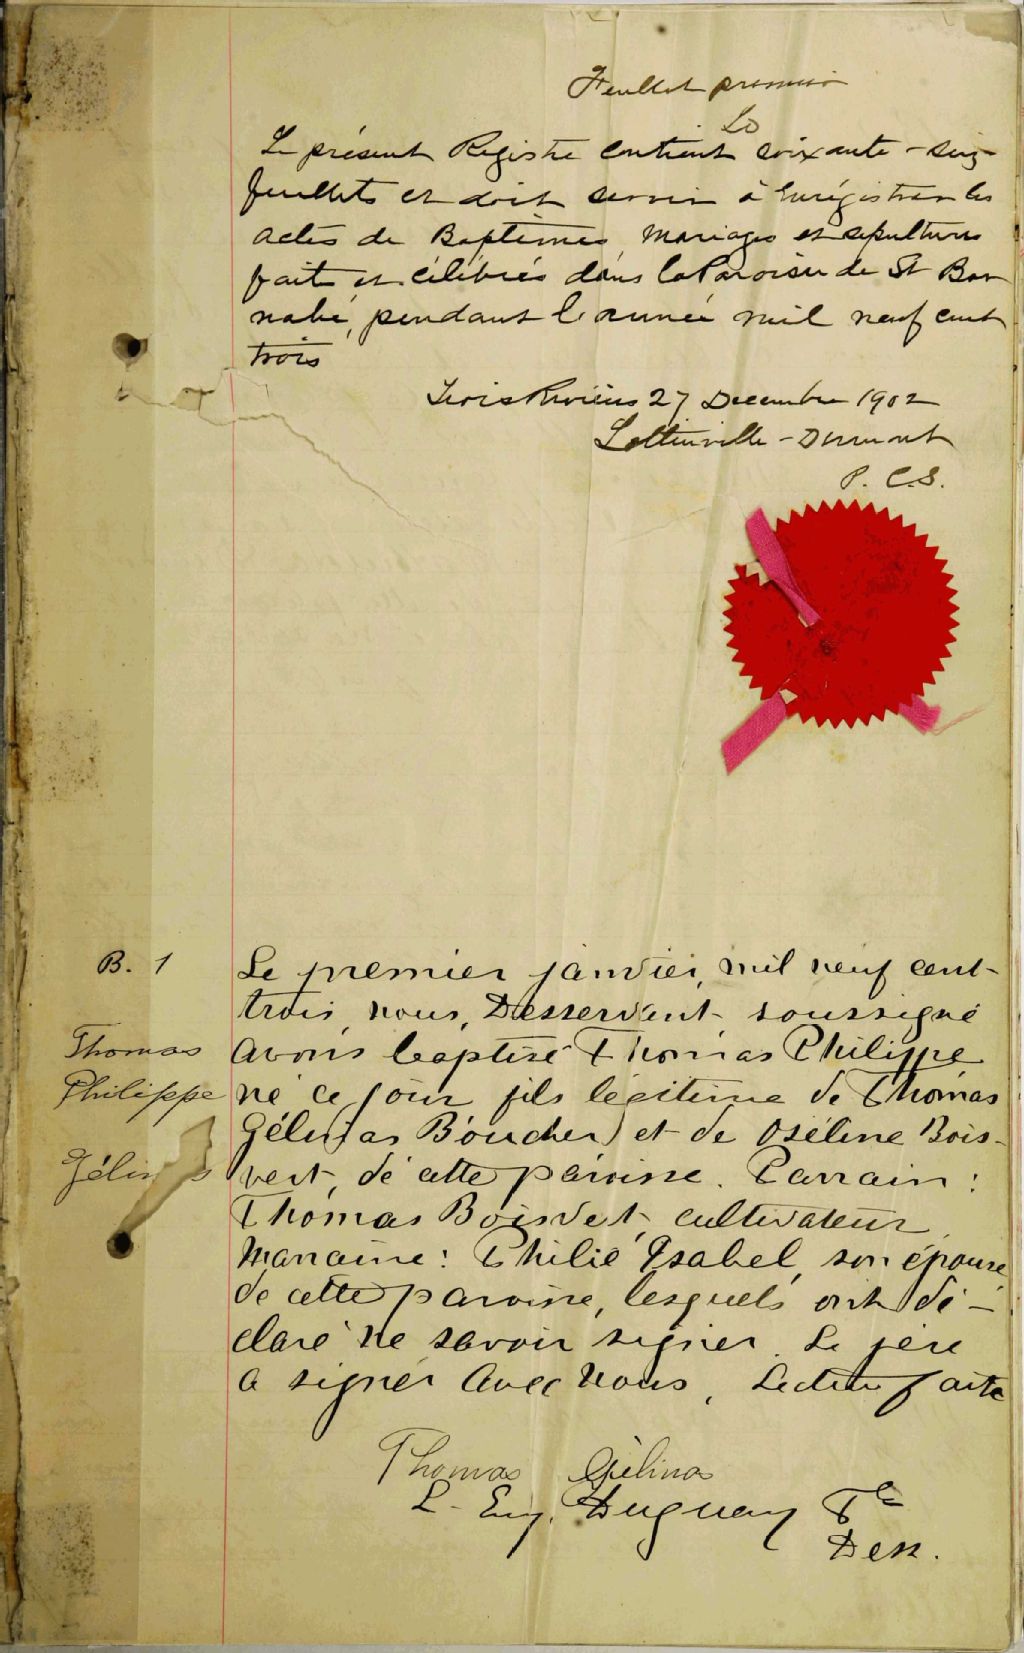 Feuillet premier
Le présent Registre contient soixante-seiz
feuillets et doit servir à Enrégistrer les
actes de Baptêmes Mariages et sepultures
fait et célébrés dans la Paroisse de St Bar
nabé, pendant l'année mil neuf cent
trois
Trois Rivières 27 Decembre 1902
Lottinville - Dumont
P. C.S.
B. 1
Le premier janvier, mil neuf cent-
trois, nous, Desservant soussigné
Thomas
avons baptisé Thomas Philippe
Philippe
né ce jour fils légitime de Thomas
Gélinas Boucher) et de Oséline Bois-
Gélinas
vert, de cette paroisse. Parrain:
Thomas Boisvert, cultivateur
Marraine: Philie Ysabel, son épouse
de cette paroisse, lesquels ont dé-
claré ne savoir signer. Le père
a signer avec nous, Lecture faite
Thomas Gélinas
L. Eug. Duguay Ptre
Dess.